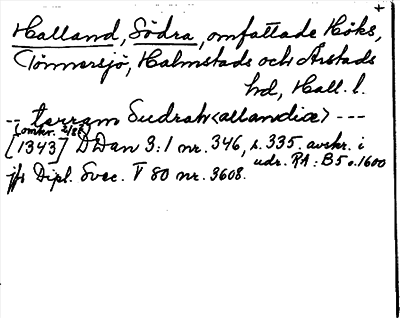 +
Halland, Södra, omfattade Höks,
Tönnersjö, Halmstads och Årstads
hd, Hall. l.
-- terram Sudrah<allandiæ> ---
(omkr. 2/8?)
[1343] DDan 3:1 nr. 346, s. 335. avskr. i
vdr. RA: B5 o. 1600
jfr Dipl. Svec. V 80 nr. 3608.